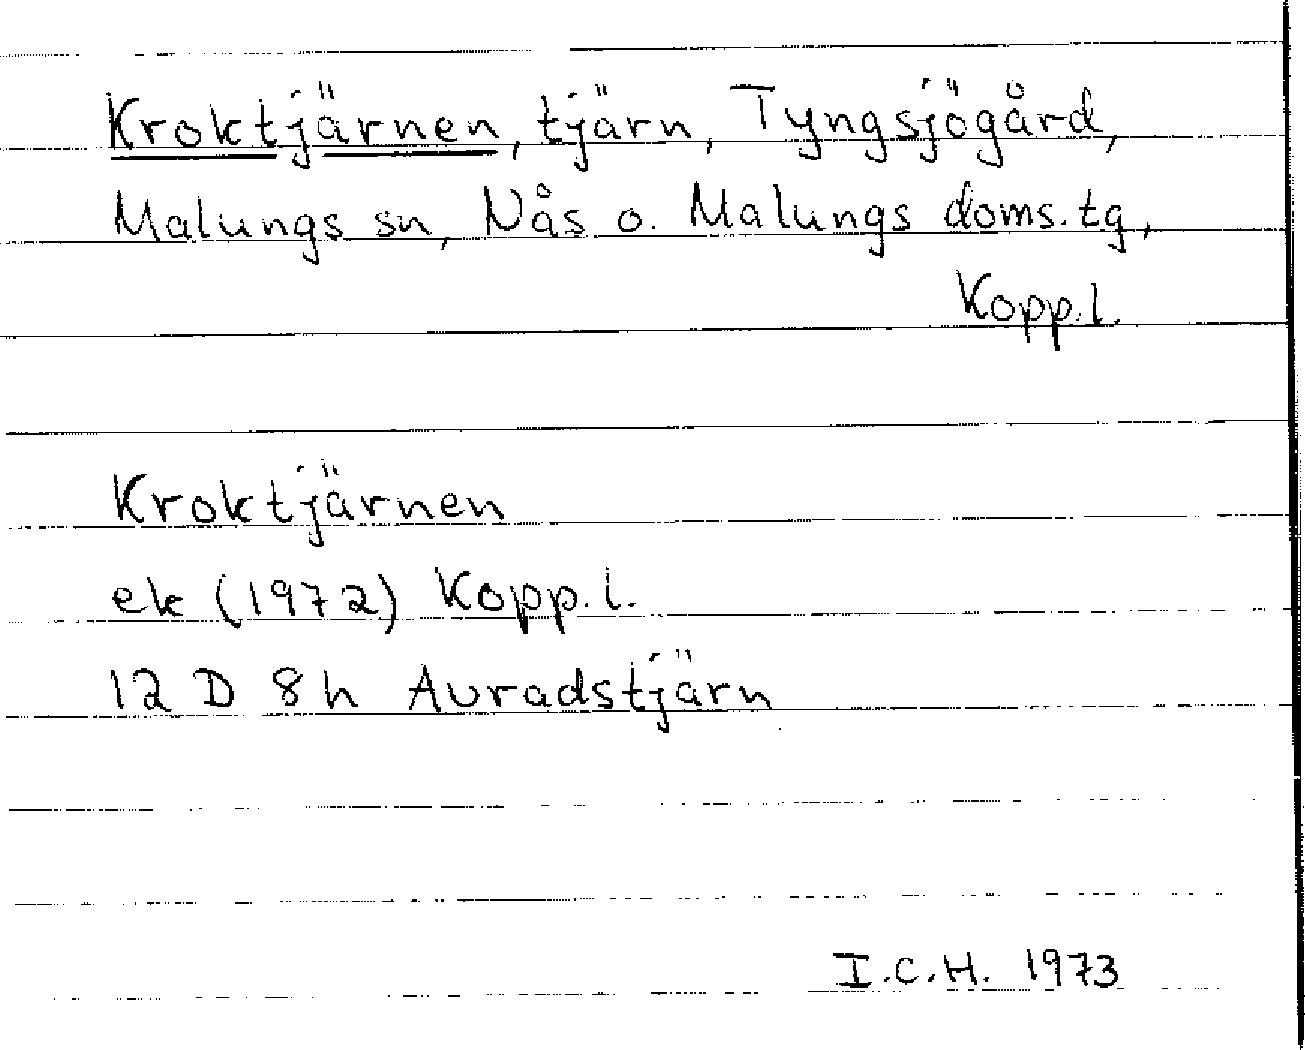 Kroktjärnen, tjärn, Tyngsjögård,
Malungs sn, Nås o. Malungs doms.tg,
Kopp.l.
Kroktjärnen
ek (1972) Kopp.l.
12 D 8h Auradstjärn
I.C.H. 1973